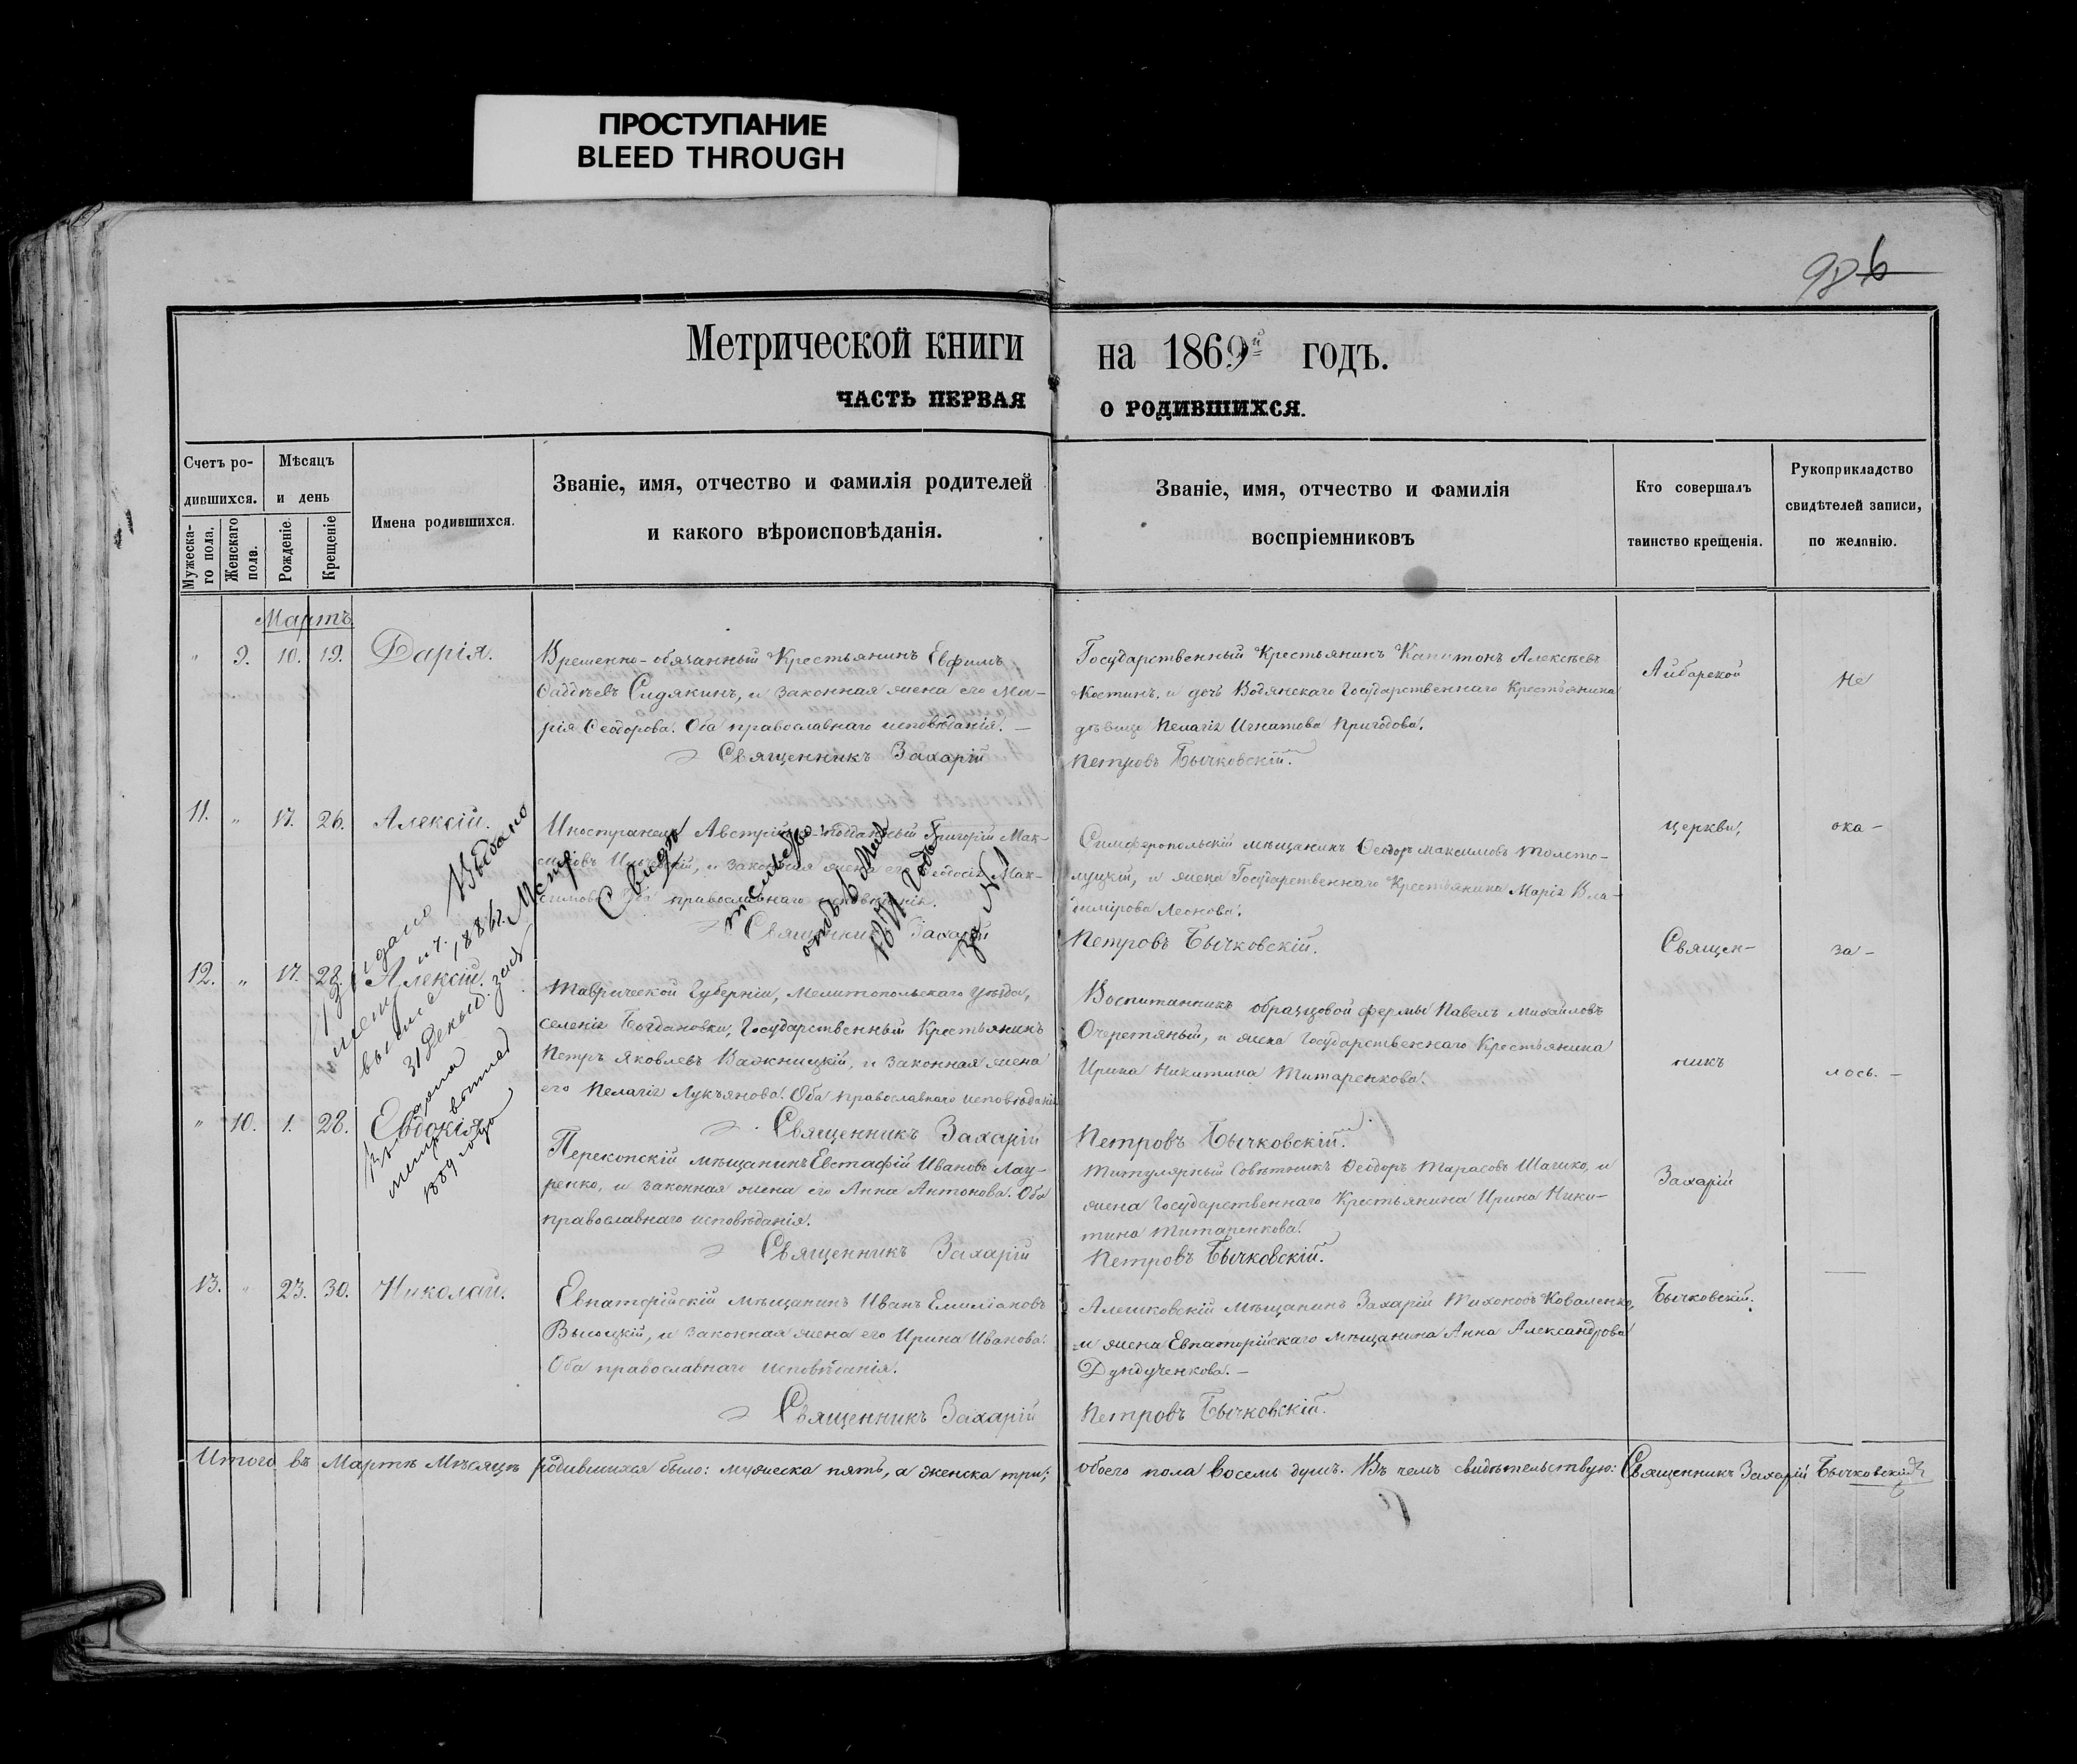 ПРОСТУПАНИЕ
BLEED THROUGH
986
Метрической книги на 1869й годъ.
ЧАСТЬ ПЕРВАЯ О РОДИВШИХСЯ.
Счетъ ро-
дившихся.
Мужеска-
го пола.
Женскаго
пола.
Мѣсяцъ
и день
Рожденіе.
Крещеніе
Имена родившихся.
Званіе, имя, отчество и фамилія родителей
и какого вѣроисповѣданія.
Званіе, имя, отчество и фамилія
воспріемниковъ
Кто совершалъ
таинство крещенія.
Рукоприкладство
свидѣтелей записи,
по желанію.
Мартъ
" 9. 10. 19. Дарія.
Временно-обязанный Крестьянинъ Евфимъ
Ѳаддѣевъ Сидякинъ, и законная жена его Ма-
рія Ѳеодорова. Оба православнаго исповѣданія. —
Священникъ Захарій
Государственный Крестьянинъ Капитонъ Алексѣевъ
Костинъ, и дочь Водянскаго Государственнаго Крестьянина
дѣвица Пелагія Игнатова Пригодова.
Петровъ Бычковскій.
11. " 17. 26. Алексій.
Иностранецъ Австрійско-подданный Григорій Мак-
симовъ и законная жена его Ѳеодосія Мак-
симова. Оба православнаго исповѣданія.
Священникъ Захарій
Симферопольскій мѣщанинъ Ѳеодоръ Максимовъ Толсто-
луцкій, и жена Государственнаго Крестьянина Марія Вла-
димірова Леонова.
Петровъ Бычковскій.
Выдано
Метр
Свидѣ
тельство
за №
12. " 17. 28. Алексій.
Таврической Губерніи, Мелитопольскаго Уѣзда,
селенія Богдановки, Государственный Крестьянинъ
Петръ Яковлевъ Важницкій, и законная жена
его Пелагія Лукъянова. Оба православнаго исповѣданія
Священникъ Захарій
Воспитанникъ образцовой фермы Павелъ Михайловъ
Очеретяный, и жена Государственнаго Крестьянина
Ирина Никитина Титаренкова.
Петровъ Бычковскій.
1886г.
" 10. 1. 28. Евдокія
Перекопскій мѣщанинъ Евстафій Ивановъ Лау-
ренко, и законная жена его Анна Антонова. Оба
православнаго исповѣданія.
Священникъ Захарій
Титулярный Совѣтникъ Ѳеодоръ Тарасовъ Шатко, и
жена Государственнаго Крестьянина Ирина Ники-
тина Титаренкова.
Петровъ Бычковскій.
1889 года
13. " 23. 30. Николай.
Евпаторійскій мѣщанинъ Иванъ Емиліановъ
Высоцкій, и законная жена его Ирина Иванова.
Оба православнаго исповѣданія.
Священникъ Захарій
Алешковскій мѣщанинъ Захарій Тихоновъ Коваленко,
и жена Евпаторійскаго мѣщанина Анна Александрова
Дундученкова. —
Петровъ Бычковскій.
Айбарской
церкви,
Священ-
никъ
Захарій
Бычковскій.
Не
ока-
за-
лось. —
Итого въ Мартѣ Мѣсяцѣ родившихся было: мужеска пять, а женска три; обоего пола восемь душъ. Въ чемъ свидѣтельствую: Священникъ Захарій Бычковскій